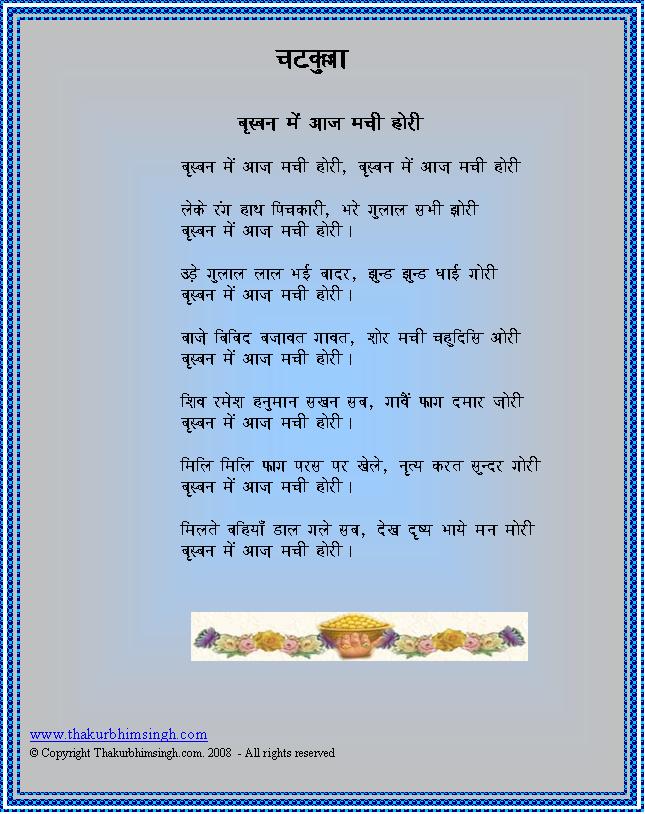 चटकुल्ला
बृस्बन में आज मची होरी
बृस्बन में आज मची होरी, बृस्बन में आज मची होरी
लेके रंग हाथ पिचकारी, भरे गुलाल सभी झोरी
बृस्बन में आज मची होरी ।
उड़े गुलाल लाल भई बादर, झुन्ड झुन्ड धाई गोरी
बृस्बन में आज मची होरी ।
बाजे बिबिद बजावत गावत, शोर मची चहुदिसि ओरी
बृस्बन में आज मची होरी ।
शिव रमेश हनुमान सखन सब, गावैं फाग दमार जोरी
बृस्बन में आज मची होरी ।
मिलि मिलि फाग परस पर खेले, नृत्य करत सुन्दर गोरी
बृस्बन में आज मची होरी ।
मिलते बहियाँ डाल गले सब, देख दृष्य भाये मन मोरी
बृस्बन में आज मची होरी ।
www.thakurbhimsingh.com
© Copyright Thakurbhimsingh.com. 2008 - All rights reserved